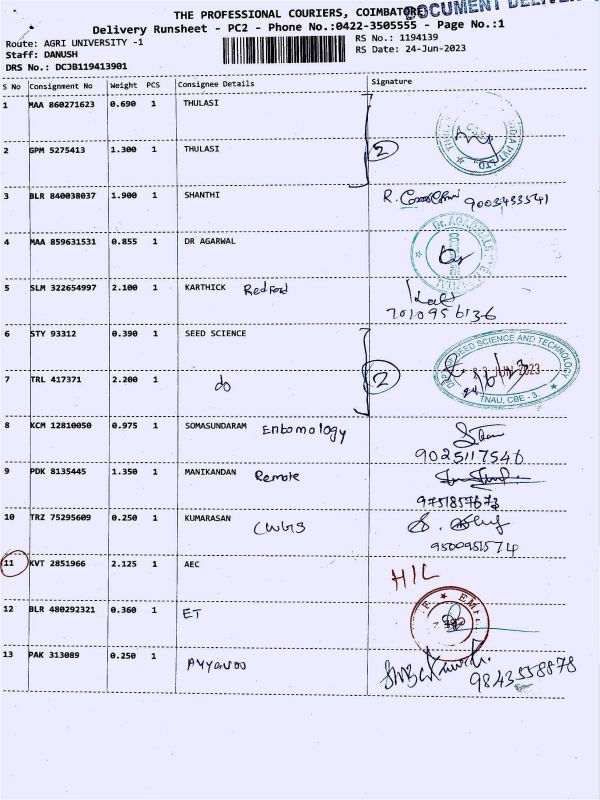 THE PROFESSIONAL COURIERS, COIMBATORE
DOCUMENT DELIVER
Delivery Runsheet - PC2 - Phone No.:0422-3505555 - Page No.:1
Route: AGRI UNIVERSITY -1
RS No.: 1194139
Staff: DANUSH
RS Date: 24-Jun-2023
DRS No.: DCJB119413901
S No Consignment No Weight PCS Consignee Details Signature
1 MAA 860271623 0.690 1 THULASI
2 GPM 5275413 1.300 1 THULASI 2
3 BLR 840038037 1.900 1 SHANTHI R. 9003433541
4 MAA 859631531 0.855 1 DR AGARWAL
5 SLM 322654997 2.100 1 KARTHICK Redford
7010956136
6 STY 93312 0.390 1 SEED SCIENCE
SEED SCIENCE AND TECHNOLOGY
JUN 2023
24/6/23
TNAU, CBE - 3.
7 TRL 417371 2.200 1 do 2
8 KCM 12810050 0.975 1 SOMASUNDARAM Entomology
9025117546
9 PDK 8135445 1.350 1 MANIKANDAN Remote
9751857673
10 TRZ 75295609 0.250 1 KUMARASAN CWGS
9500951574
11 KVT 2851966 2.125 1 AEC HIL
12 BLR 480292321 0.360 1 ET
13 PAK 313089 0.250 1 Ayyavoo
9843558878